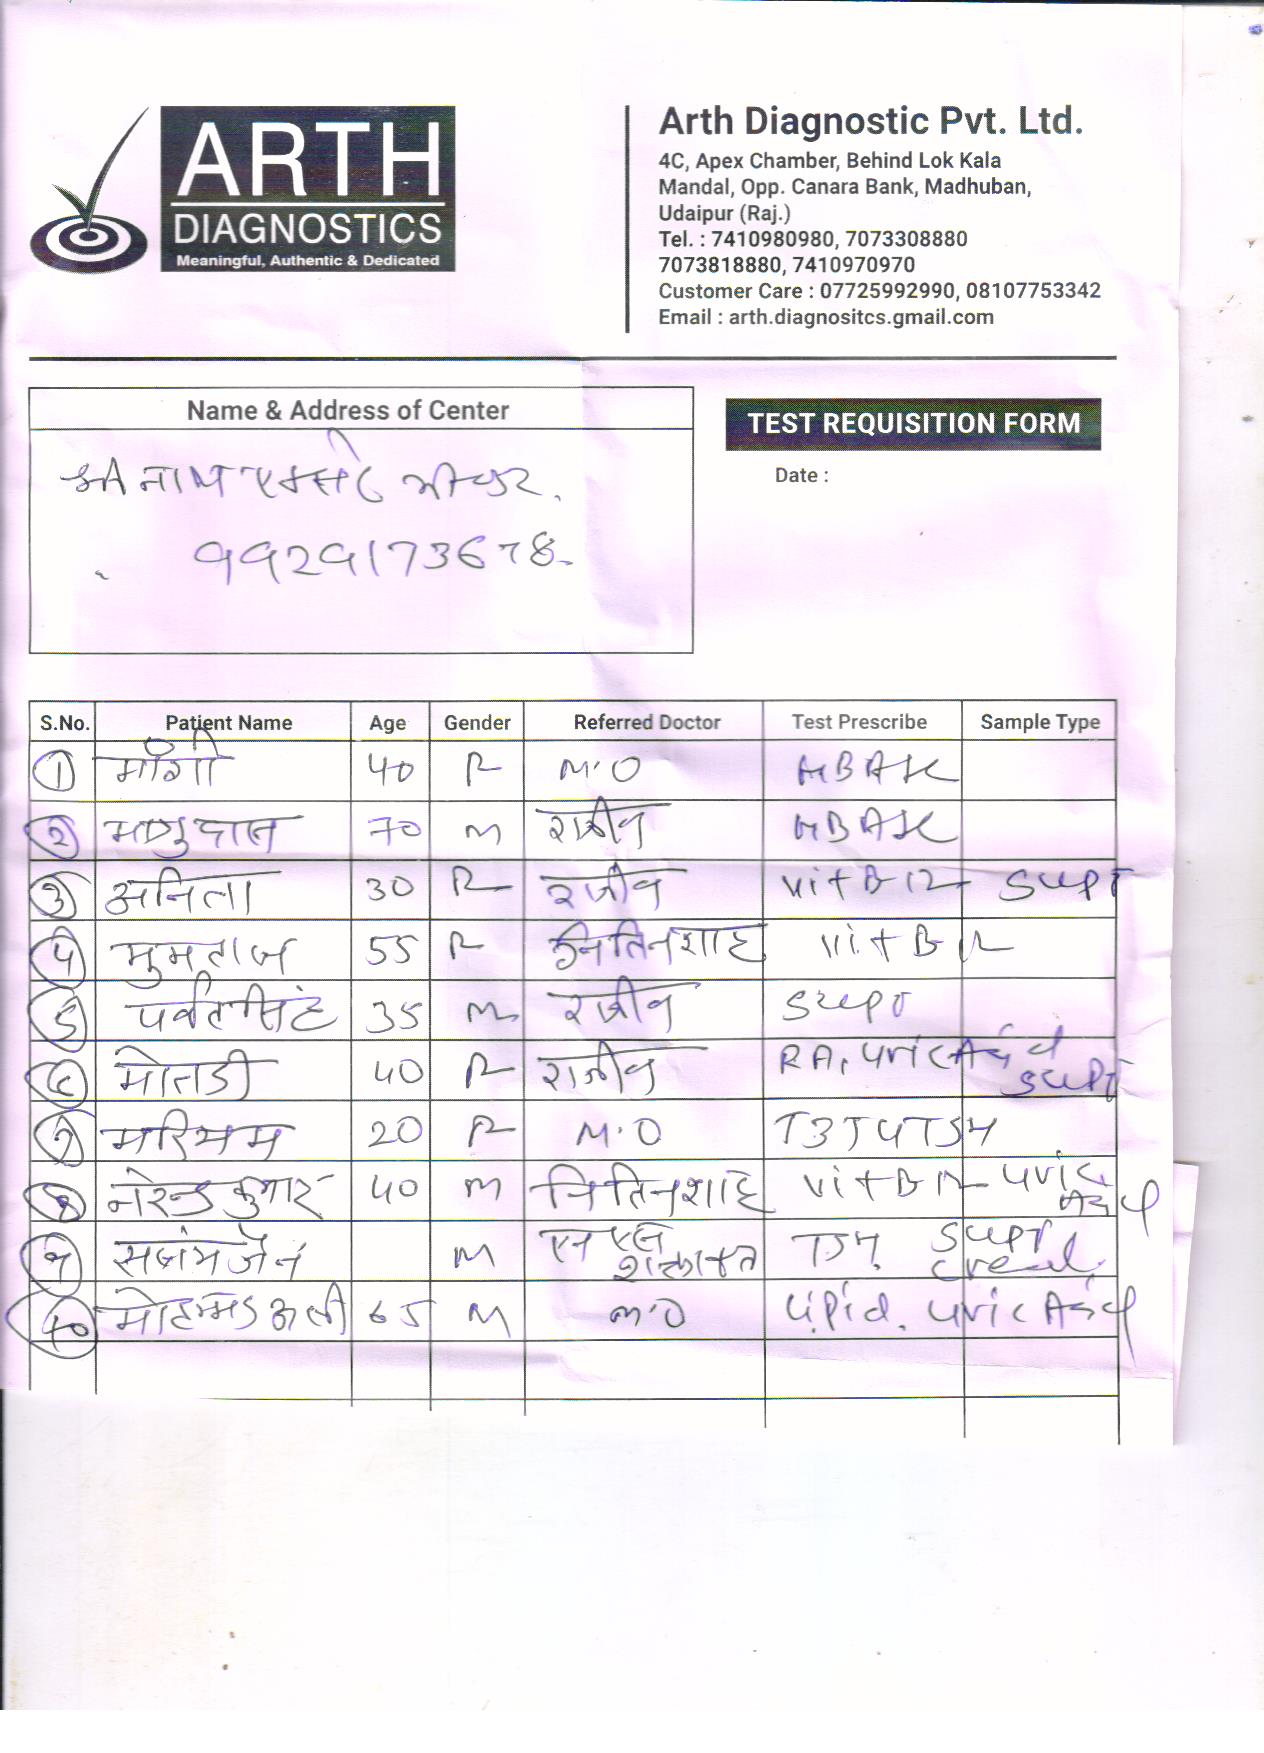 ARTH
DIAGNOSTICS
Meaningful, Authentic & Dedicated
Arth Diagnostic Pvt. Ltd.
4C, Apex Chamber, Behind Lok Kala
Mandal, Opp. Canara Bank, Madhuban,
Udaipur (Raj.)
Tel. : 7410980980, 7073308880
7073818880, 7410970970
Customer Care : 07725992990, 08107753342
Email : arth.diagnositcs.gmail.com
Name & Address of Center
TEST REQUISITION FORM
Date :
9929173678
S.No. Patient Name Age Gender Referred Doctor Test Prescribe Sample Type
1 मांगी 40 F M.O HBA1C
2 70 M राजीव HBA1C
3 अनिता 30 F रजीव Vit B12 SGPT
4 मुमताज 55 F नितिन शाह Vit B12
5 पर्वतसिंह 35 M रजीव SGPT
6 मोतडी 40 F राजीव RA, Uric Acid SGPT
7 मरियम 20 F M.O T3 T4 TSH
8 नरेन्द्र कुमार 40 M नितिन शाह Vit B12 Uric Acid
9 जैन M एन एल TSH. SGPT Creat.
10 मोहम्मद अली 65 M M.O Lipid. Uric Acid